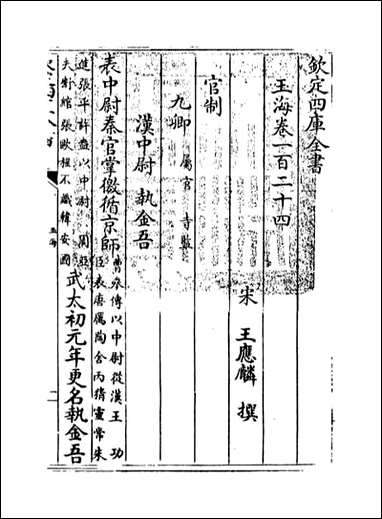 欽定四庫全書
玉海卷一百二十四
宋 王應麟 撰
官制
九卿 屬官 寺監
漢中尉 執金吾
表中尉秦官掌徼循京師 曹參傳以中尉從漢王 功
臣表唐厲陶舍丙猜靈常朱
進張平許盎以中尉 周亞
夫郅都 張歐 不識韓安國 武太初元年更名執金吾
玉海